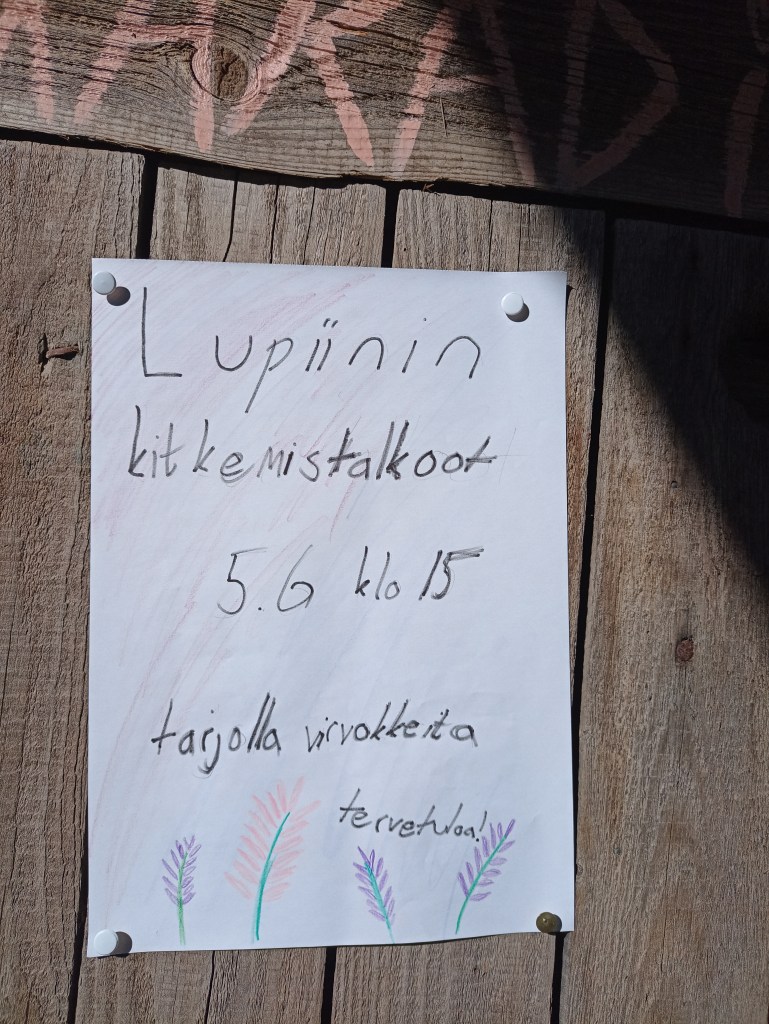 Lupiinin
kitkemistalkoot
5.6 klo 15
tarjolla virvokkeita
tervetuloa!